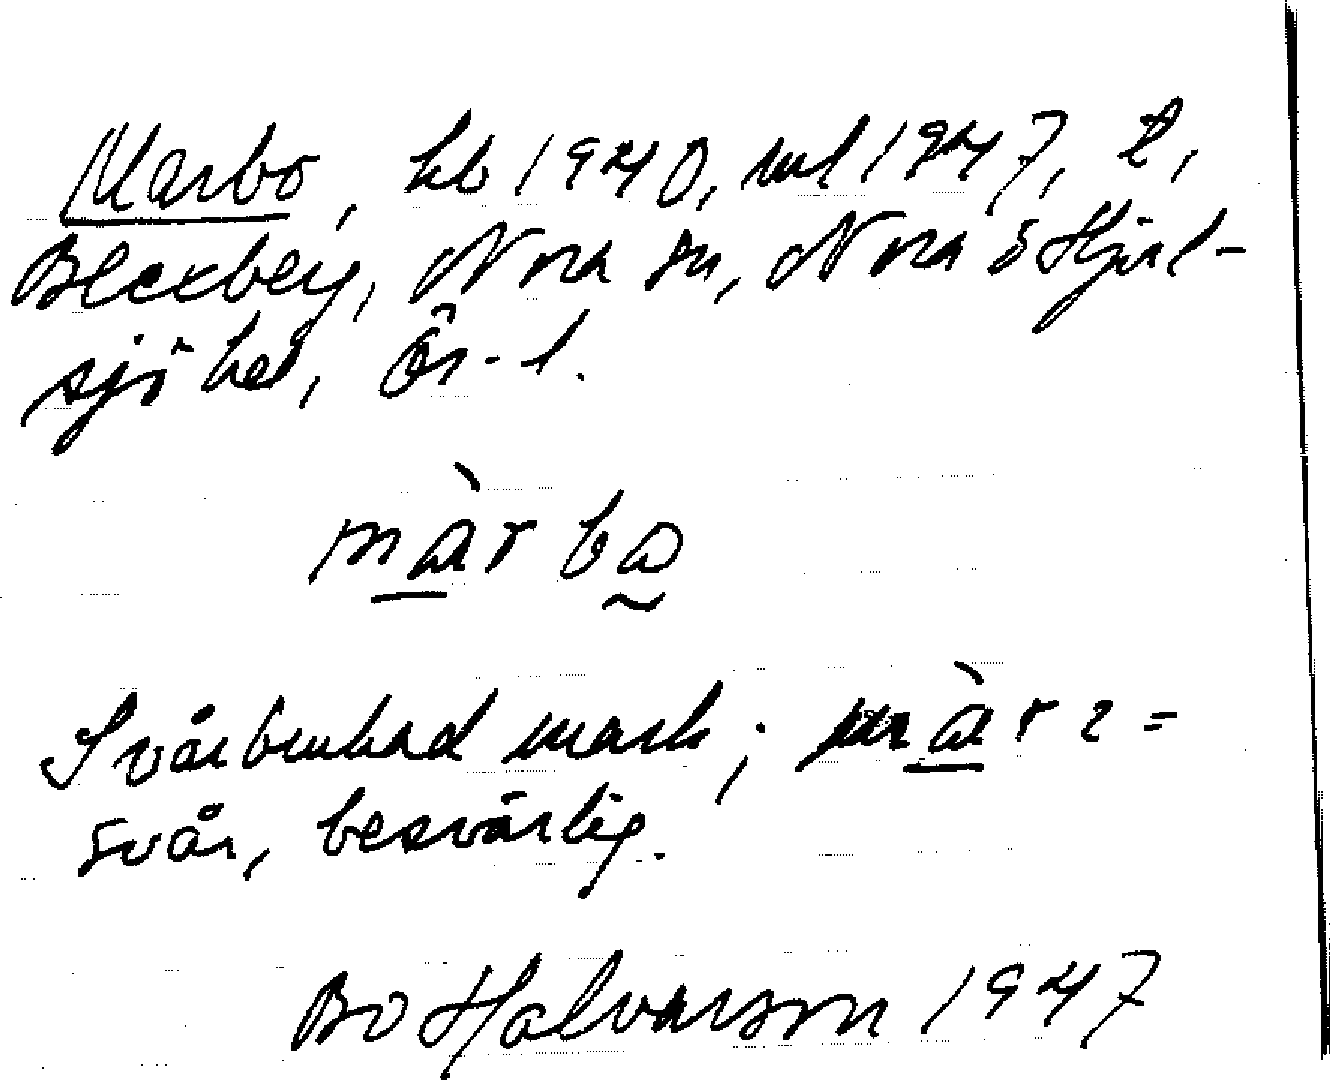 Marbo, hb 1940, ml 1947, t,
Blexberg, Nora sn, Nora o Hjul-
sjö hd, Ör. l.
màr bo
Svårbrukad mark; màr 2 =
svår, besvärlig.
Bo Halvarson 1947